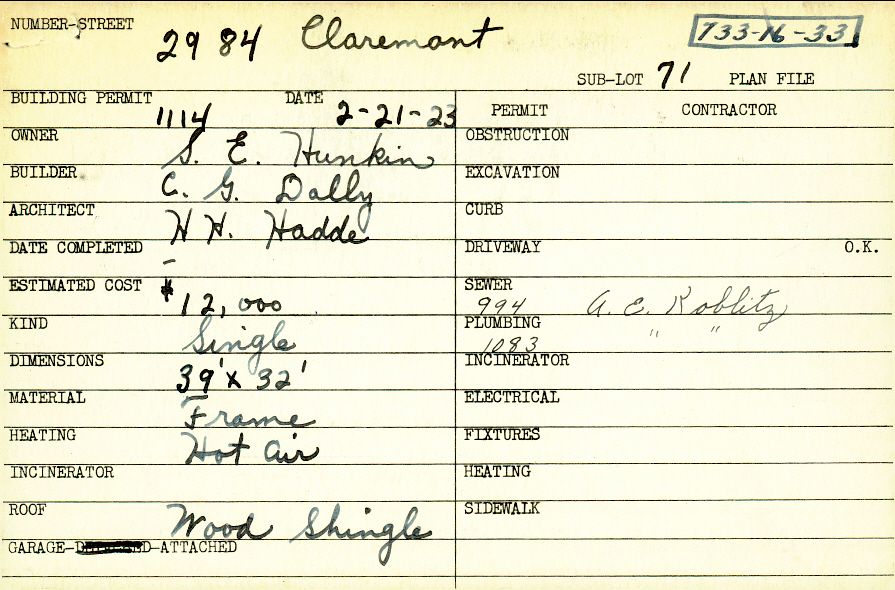 NUMBER-STREET 2984 Claremont 733-16-33
SUB-LOT 71 PLAN FILE
BUILDING PERMIT 1114 DATE 2-21-23
PERMIT CONTRACTOR
OWNER S. E. Hunkin
OBSTRUCTION
BUILDER C. G. Dally
EXCAVATION
ARCHITECT H H. Hadde
CURB
DATE COMPLETED -
DRIVEWAY O.K.
ESTIMATED COST $12,000
SEWER 994 A. E. Koblitz
KIND Single
PLUMBING 1083 " "
DIMENSIONS 39' x 32'
INCINERATOR
MATERIAL Frame
ELECTRICAL
HEATING Hot Air
FIXTURES
INCINERATOR
HEATING
ROOF Wood Shingle
SIDEWALK
GARAGE- -ATTACHED